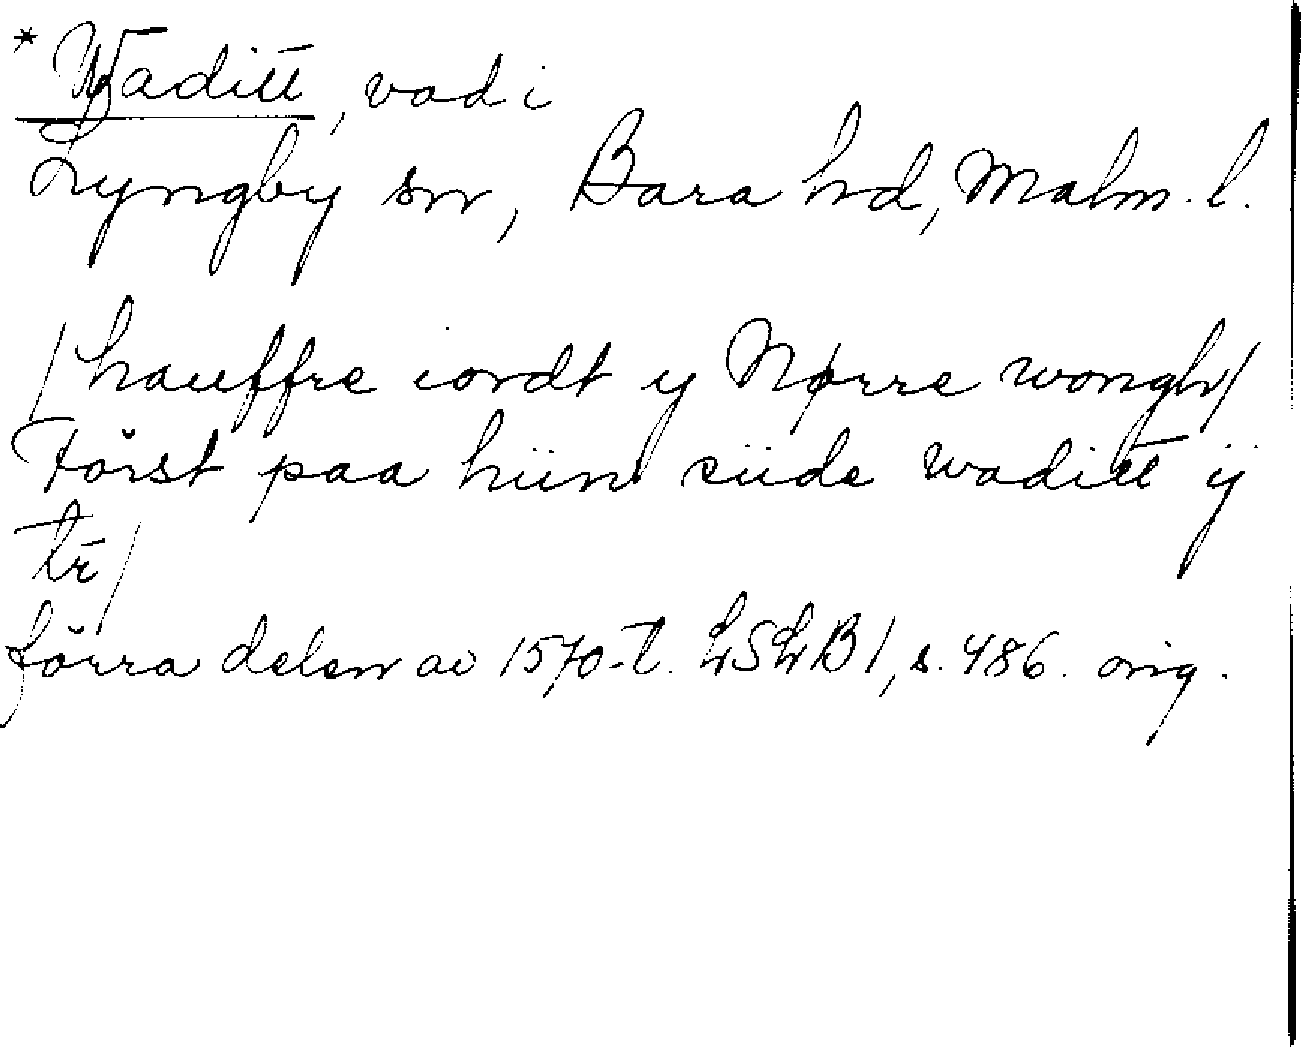 * Waditt, vad i
Lyngby sn, Bara hd, Malm. l.
/hauffre iordt y Nørre wongh/
Först paa hiin siide waditt ÿ
tr/
förra delen av 1570-t. LSLB 1, s. 486. orig.